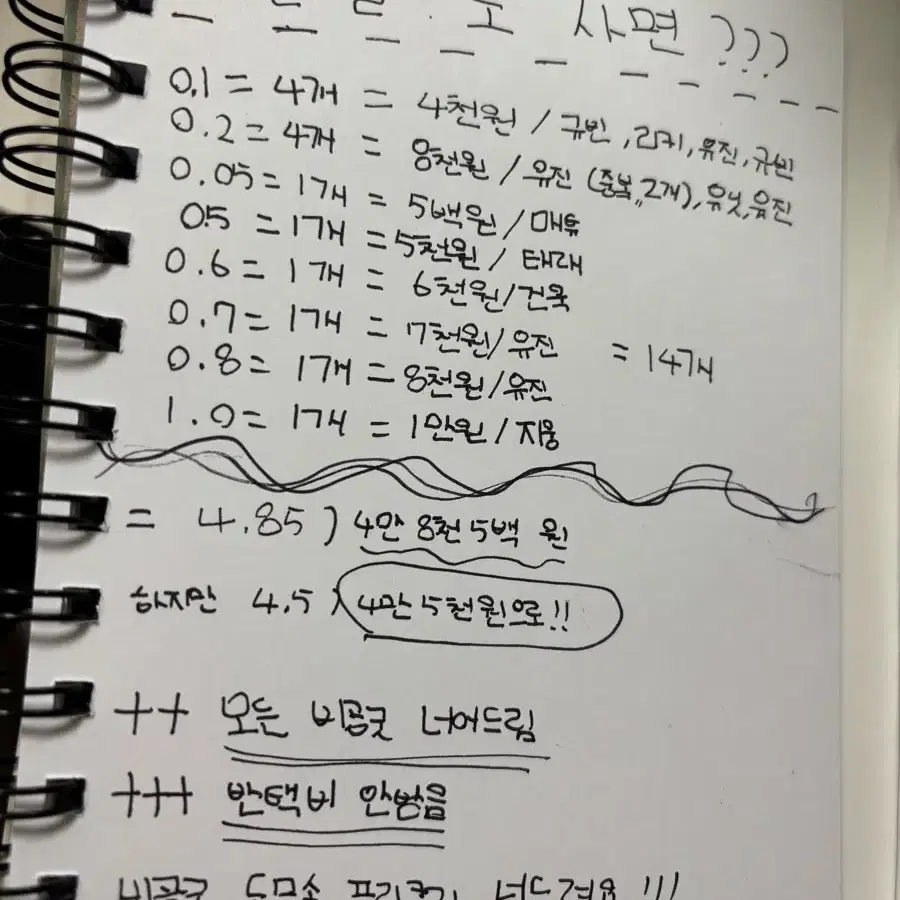 사면???
0.1 = 4개 = 4천원 / 규빈, 리키, 유진, 규빈
0.2 = 4개 = 8천원 / 유진 (중복, 2개), 유닛, 유진
0.05 = 1개 = 5백원 / 매튜
0.5 = 1개 = 5천원 / 태래
0.6 = 1개 = 6천원/건욱
0.7 = 1개 = 7천원/유진 = 14개
0.8 = 1개 = 8천원/유진
1.0 = 1개 = 1만원/지웅
= 4.85) 4만 8천 5백 원
하지만 4.5) 4만 5천원으로!!
++ 모든 비공굿 너어드림
+++ 반택비 안받음
비공굿 !!!